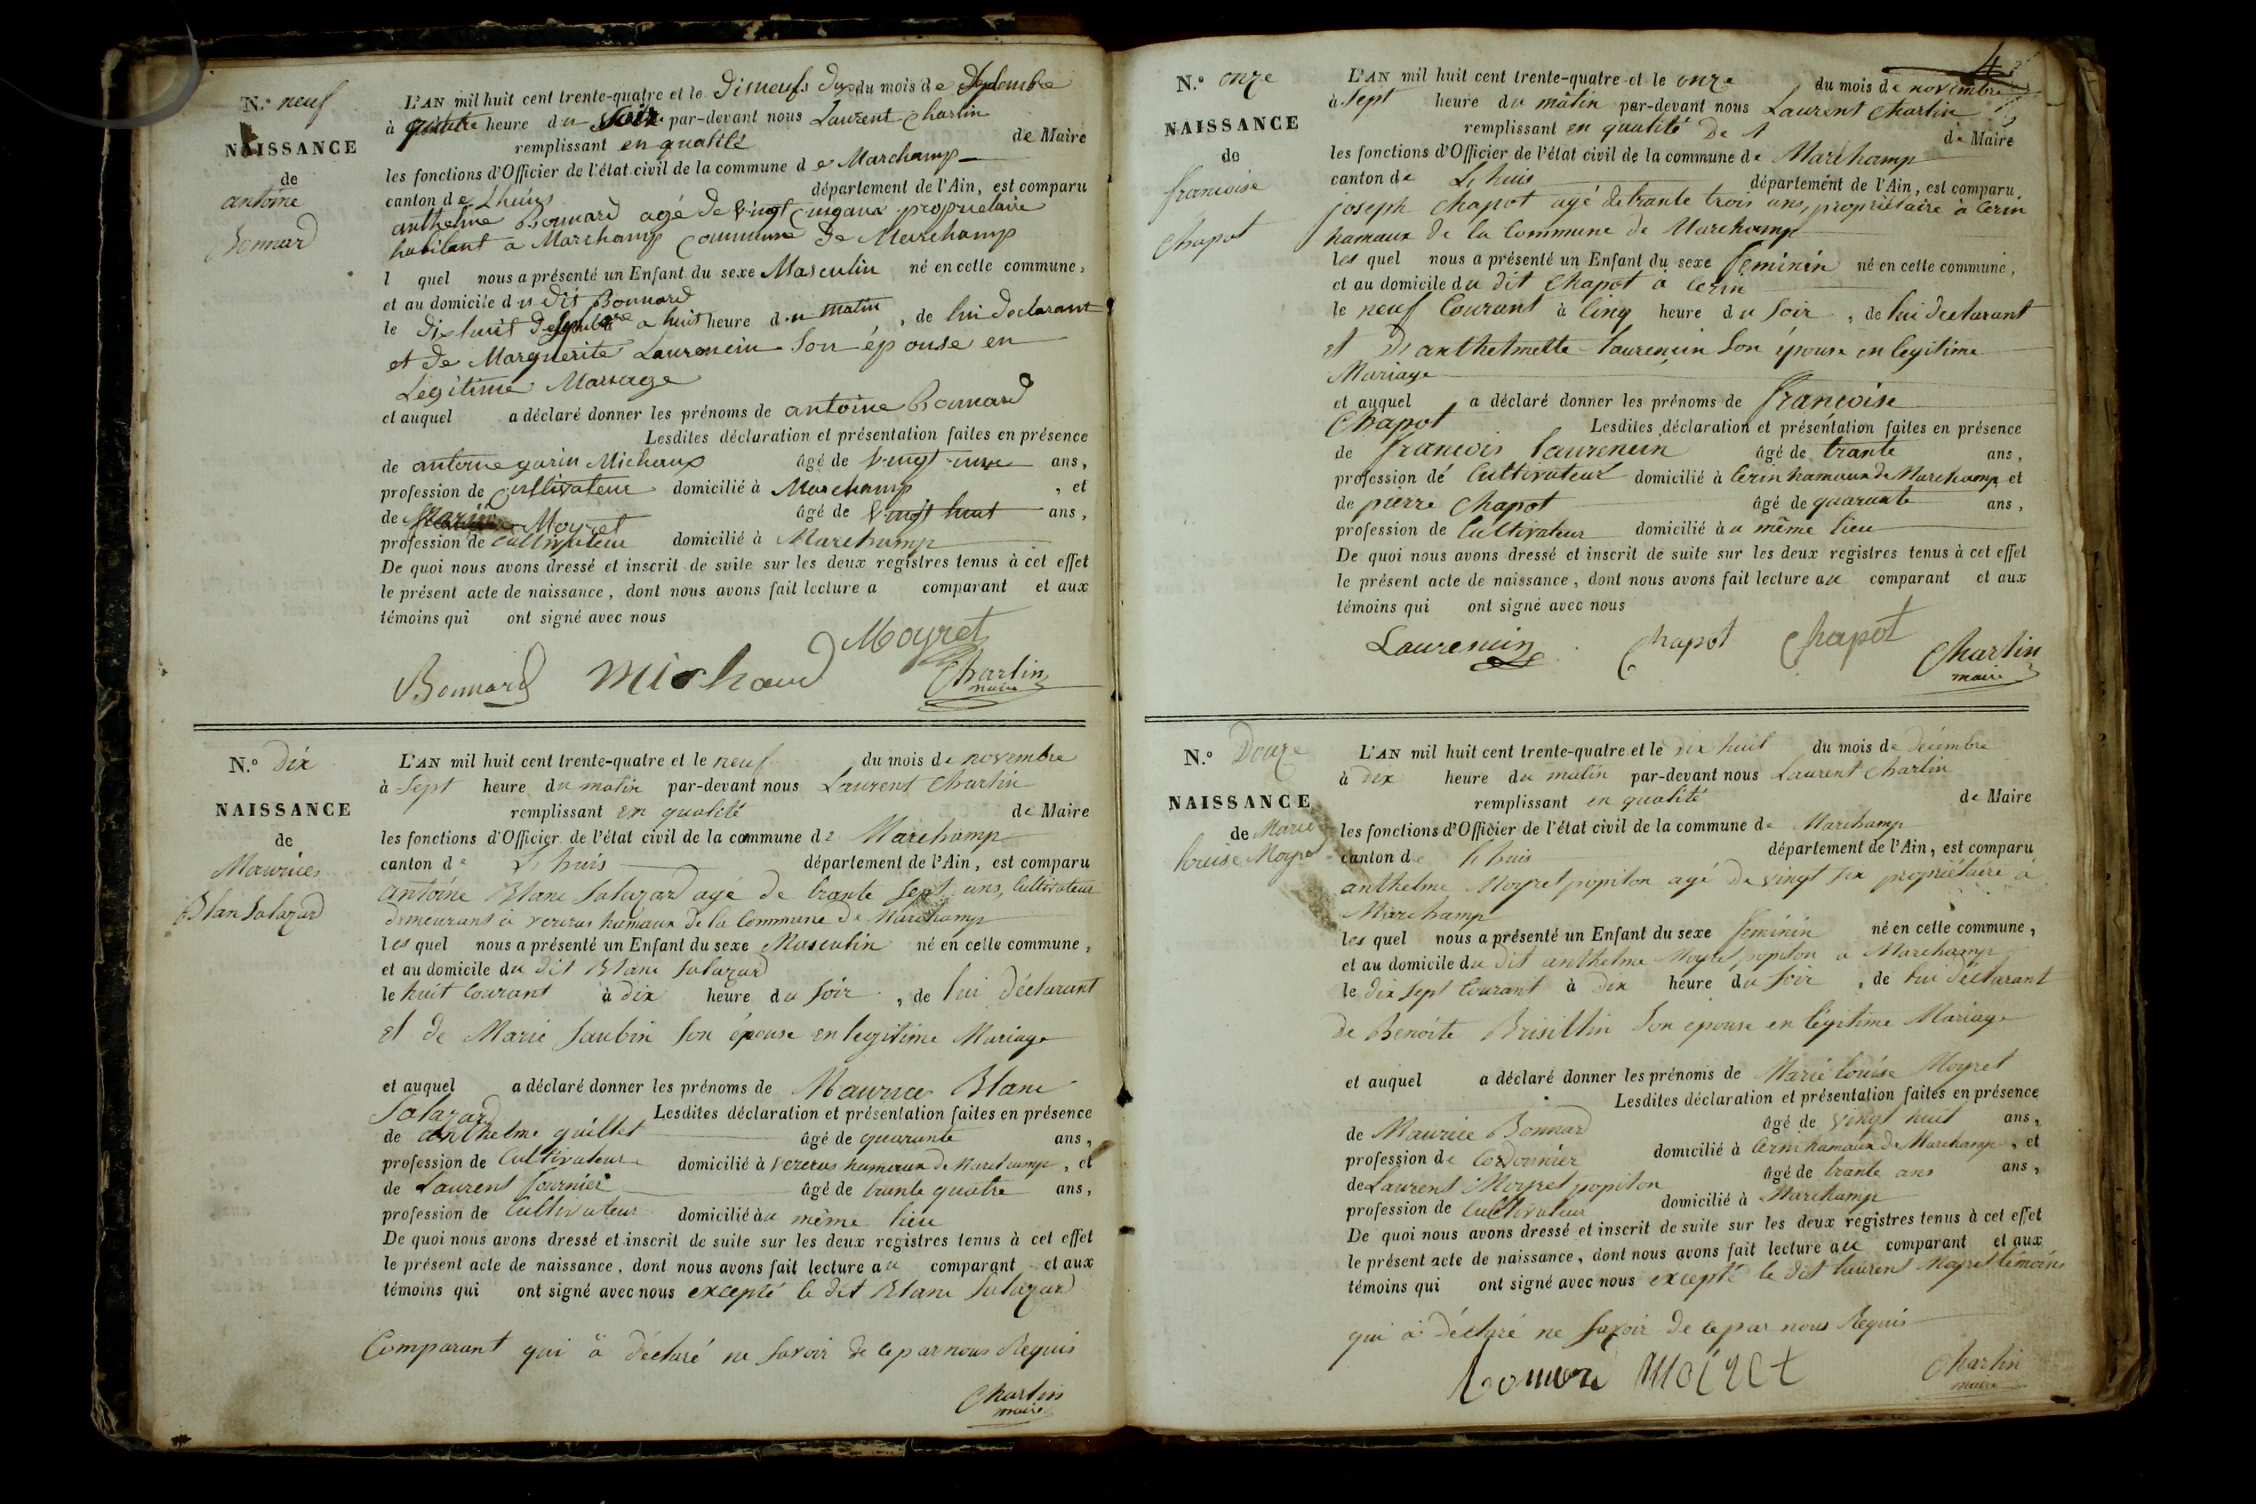 N.º neuf
NAISSANCE
de
antoine
Bonnard
L'AN mil huit cent trente-quatre et le disneufs du mois de Septembre
à quatre heure du Soir par-devant nous Laurent Charlin
remplissant en qualité de Maire
les fonctions d'Officier de l'état civil de la commune de Marchamp
canton de Lhuis département de l'Ain, est comparu
anthelme Bonnard agé de vingt cinq ans propriétaire
habitant à Marchamp Commune de Marchamp
l quel nous a présenté un Enfant du sexe Masculin né en cette commune,
et au domicile du dit Bonnard
le dishuit Septembre a huit heure du matin, de lui declarant
et de Marguerite Laurencin Son épouse en
Légitime Mariage
et auquel a déclaré donner les prénoms de antoine Bonnard
Lesdites déclaration et présentation faites en présence
de antoine garin Michaux âgé de vingt ans,
profession de Cultivateur domicilié à Marchamp, et
de Moyret âgé de vingt huit ans,
profession de Cultivateur domicilié à Marchamp
De quoi nous avons dressé et inscrit de suite sur les deux registres tenus à cet effet
le présent acte de naissance, dont nous avons fait lecture a comparant et aux
témoins qui ont signé avec nous
Moyret
Bonnard Michaud Charlin
maire
N.º Dix
NAISSANCE
de
Maurice
Blan Salazard
L'AN mil huit cent trente-quatre et le neuf du mois de novembre
à Sept heure du matin par-devant nous Laurent Charlin
remplissant en qualité de Maire
les fonctions d'Officier de l'état civil de la commune de Marchamp
canton de Lhuis département de l'Ain, est comparu
antoine Blanc Salazard agé de trante Sept ans, Cultivateur
demeurant à hamaux de la Commune de Marchamp
les quel nous a présenté un Enfant du sexe Masculin né en cette commune,
et au domicile du dit Blanc Salazard
le huit Courant à dix heure du Soir, de lui déclarant
et de Marie Saubin Son épouse en legitime Mariage
et auquel a déclaré donner les prénoms de Maurice Blanc
Salazard Lesdites déclaration et présentation faites en présence
de anthelme guillet âgé de quarante ans,
profession de Cultivateur domicilié à hamaux de Marchamp, et
de Laurent fournier âgé de trante quatre ans,
profession de Cultivateur domicilié au même lieu
De quoi nous avons dressé et inscrit de suite sur les deux registres tenus à cet effet
le présent acte de naissance, dont nous avons fait lecture au comparant et aux
témoins qui ont signé avec nous excepté le dit Blanc Salazard
Comparant qui a déclaré ne Savoir de ce par nous Requis
Charlin
maire
4
N.º onze
NAISSANCE
de
francoise
Chapot
L'AN mil huit cent trente-quatre et le onze du mois de novembre
à Sept heure du matin par-devant nous Laurent Charlin
remplissant en qualité de Maire
les fonctions d'Officier de l'état civil de la commune de Marchamp
canton de Lhuis département de l'Ain, est comparu
joseph Chapot agé de trante trois ans, propriétaire à Cerin
hamaux de la Commune de Marchamp
les quel nous a présenté un Enfant du sexe feminin né en cette commune,
et au domicile du dit Chapot à Cerin
le neuf Courant à Cinq heure du Soir, de lui déclarant
et de anthelmette Laurencin Son épouse en legitime
Mariage
et auquel a déclaré donner les prénoms de francoise
Chapot Lesdites déclaration et présentation faites en présence
de francois Laurencin âgé de trante ans,
profession de Cultivateur domicilié à Cerin hamaux de Marchamp et
de pierre Chapot âgé de quarante ans,
profession de Cultivateur domicilié au même lieu
De quoi nous avons dressé et inscrit de suite sur les deux registres tenus à cet effet
le présent acte de naissance, dont nous avons fait lecture au comparant et aux
témoins qui ont signé avec nous
Laurencin Chapot Chapot Charlin
maire
N.º Douze
NAISSANCE
de Marie
louise Moyret
L'AN mil huit cent trente-quatre et le dix huit du mois de décembre
à dix heure du matin par-devant nous Laurent Charlin
remplissant en qualité de Maire
les fonctions d'Officier de l'état civil de la commune de Marchamp
canton de Lhuis département de l'Ain, est comparu
anthelme Moyret popiton agé de vingt six propriétaire à
Marchamp
les quel nous a présenté un Enfant du sexe feminin né en cette commune,
et au domicile du dit anthelme Moyret popiton a Marchamp
le dix Sept Courant à dix heure du Soir, de lui déclarant
de Benoite Brisillin Son épouse en légitime Mariage
et auquel a déclaré donner les prénoms de Marie louise Moyret
Lesdites déclaration et présentation faites en présence
de Maurice Bonnard âgé de vingt huit ans,
profession de Cordonnier domicilié à Cerin hamaux de Marchamp, et
de Laurent Moyret popiton âgé de trante ans ans,
profession de Cultivateur domicilié à Marchamp
De quoi nous avons dressé et inscrit de suite sur les deux registres tenus à cet effet
le présent acte de naissance, dont nous avons fait lecture au comparant et aux
témoins qui ont signé avec nous excepté le dit laurent Moyret témoins
qui a déclaré ne Savoir de ce par nous Requis
Charlin
maire